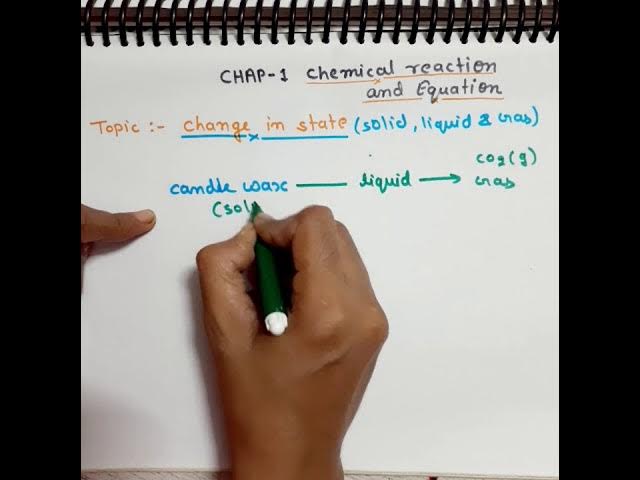 CHAP-1 Chemical reaction
and Equation
Topic :- Change in state (solid, liquid & Gas)
CO2(g)
candle wax —— liquid ⟶ Gas
(sol